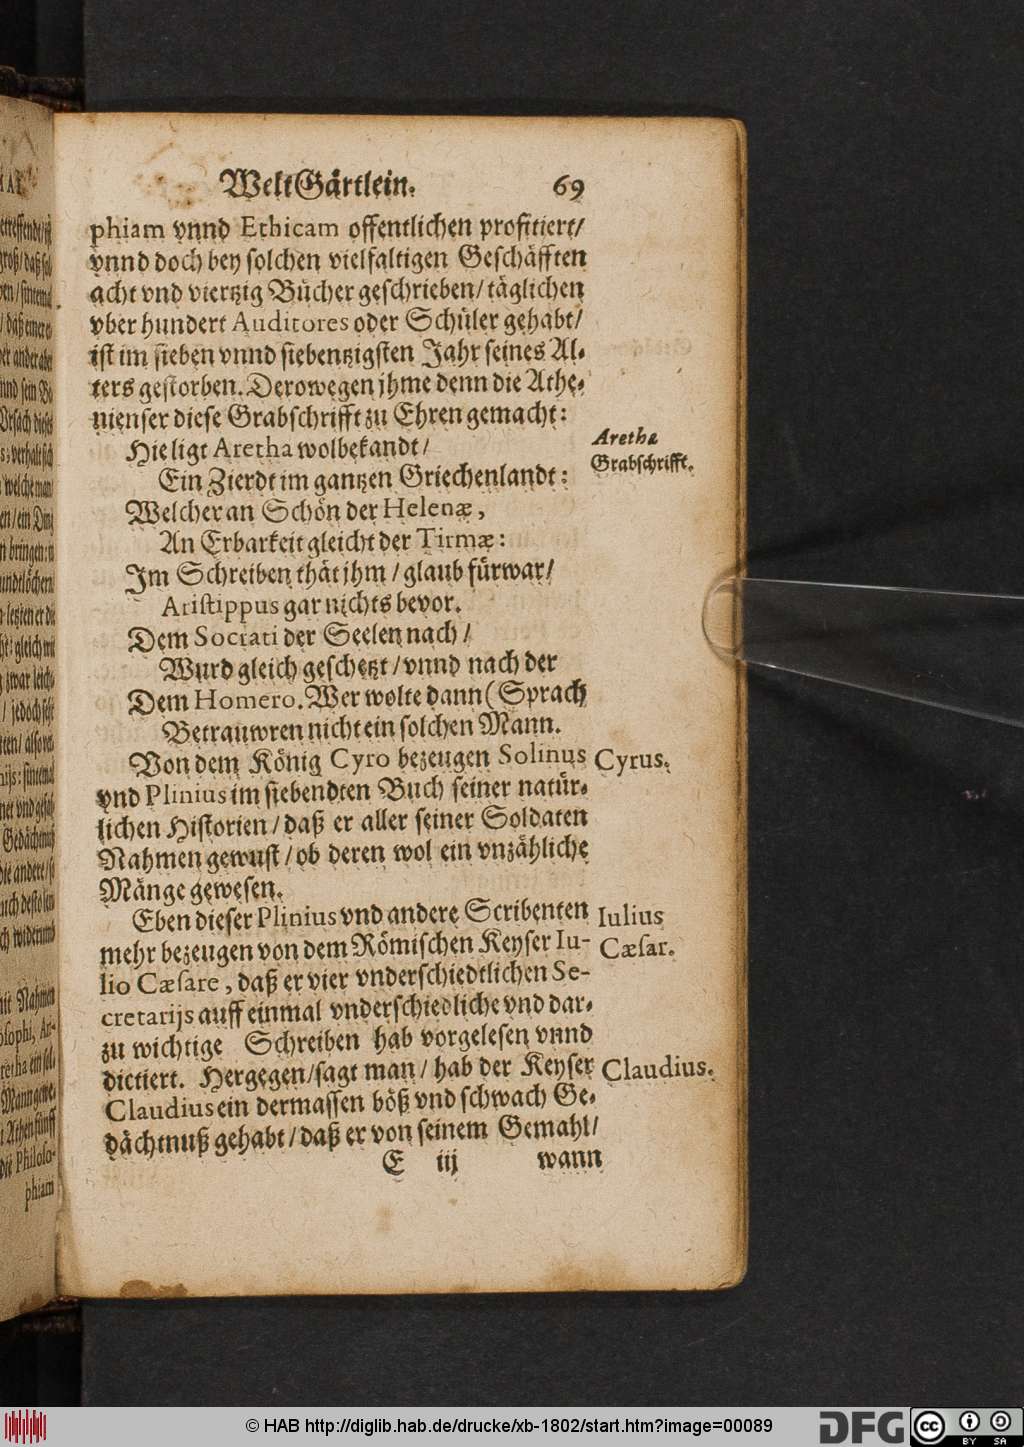 WeltGärtlein. 69
phiam vnnd Ethicam offentlichen profitiert/
vnnd doch bey solchen vielfaltigen Geschäfften
acht vnd viertzig Bücher geschrieben/ täglichen
vber hundert Auditores oder Schüler gehabt/
ist im sieben vnnd siebentzigsten Jahr seines Al-
ters gestorben. Derowegen jhme denn die Athe-
nienser diese Grabschrifft zu Ehren gemacht:
Hie ligt Aretha wolbekandt/
Aretha
Grabschrifft.
Ein Zierdt im gantzen Griechenlandt:
Welcher an Schön der Helenæ,
An Erbarkeit gleicht der Tirmæ:
Im Schreiben thät jhm/ glaub fürwar/
Aristippus gar nichts bevor.
Dem Socrati der Seelen nach/
Wurd gleich geschetzt/ vnnd nach der
Dem Homero. Wer wolte dann (Sprach
Betrauwren nicht ein solchen Mann.
Von dem König Cyro bezeugen Solinus
Cyrus.
vnd Plinius im siebendten Buch seiner natür-
lichen Historien/ daß er aller seiner Soldaten
Nahmen gewust/ ob deren wol ein vnzähliche
Mänge gewesen.
Eben dieser Plinius vnd andere Scribenten
Iulius
Cæsar.
mehr bezeugen von dem Römischen Keyser Iu-
lio Cæsare, daß er vier vnderschiedtlichen Se-
cretarijs auff einmal vnderschiedliche vnd dar-
zu wichtige Schreiben hab vorgelesen vnnd
dictiert. Hergegen/ sagt man/ hab der Keyser
Claudius.
Claudius ein dermassen böß vnd schwach Ge-
dächtnuß gehabt/ daß er von seinem Gemahl/
E iij wann
© HAB http://diglib.hab.de/drucke/xb-1802/start.htm?image=00089
DFG
cc BY SA